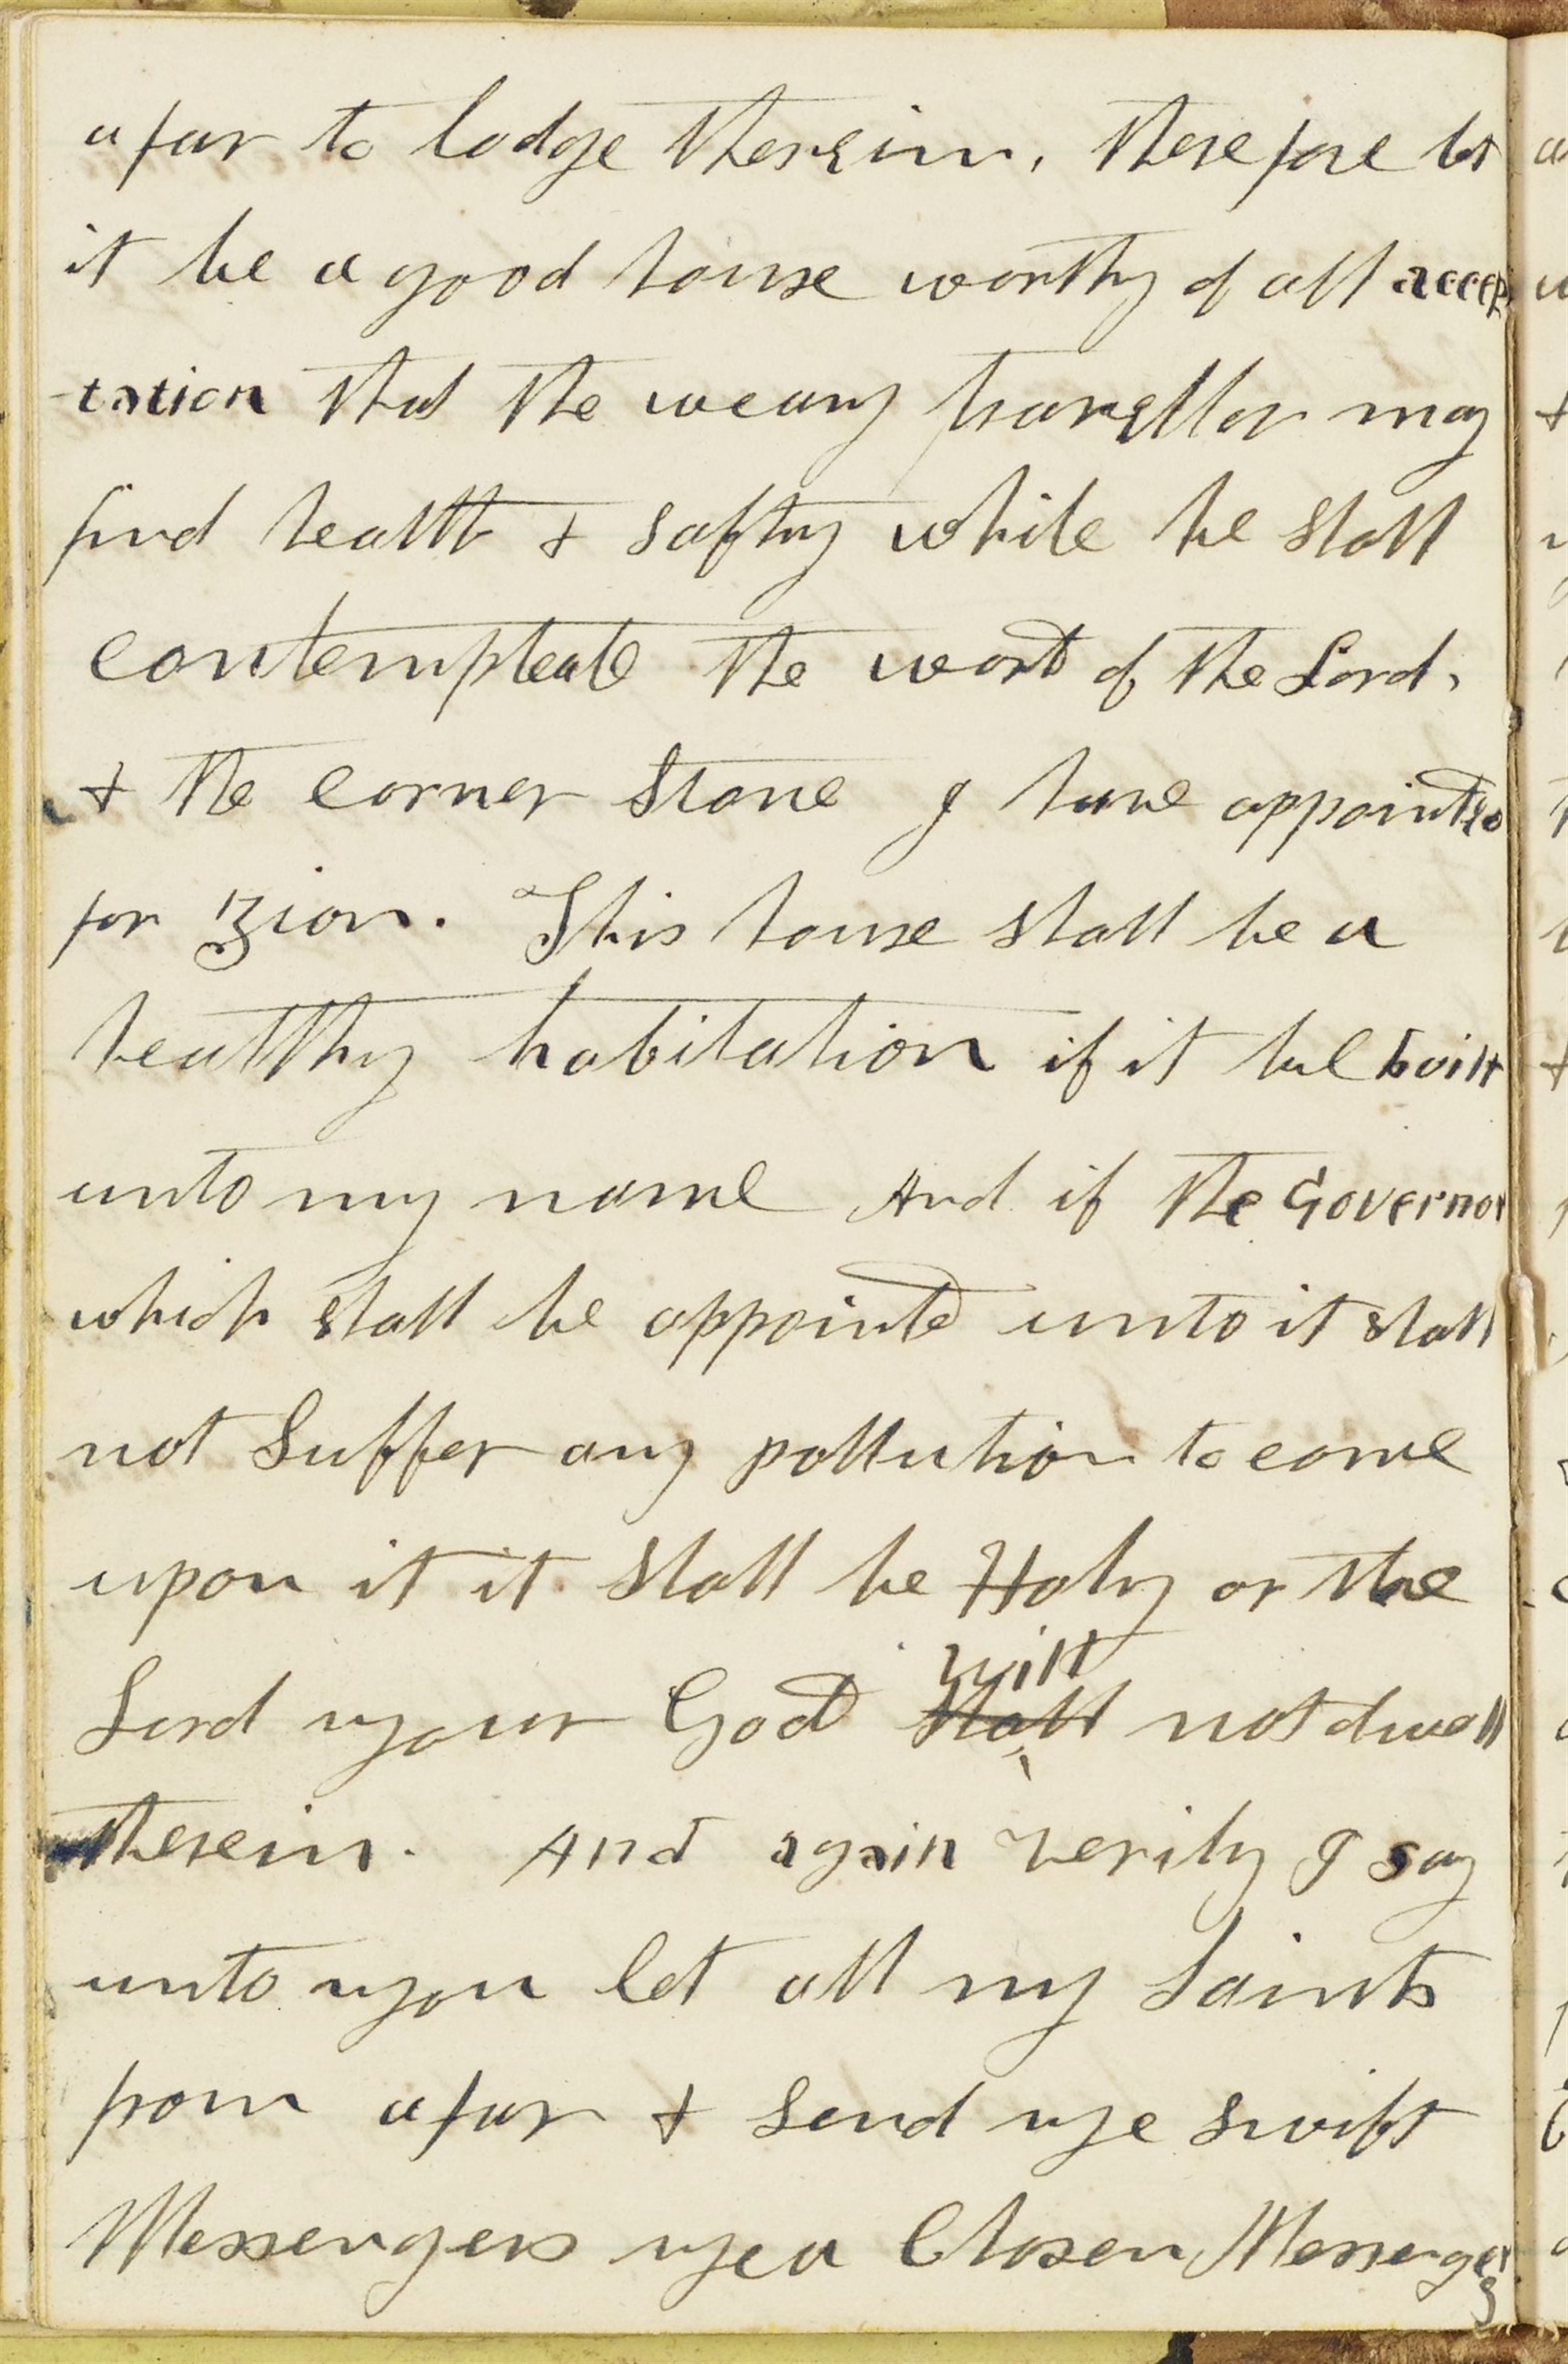 afar to lodge therein, therefore let
it be a good house worthy of all accep
-tation that the weary traveller may
find health & safty while he shall
contempleate the word of the Lord,
& the corner Stone I have appointed
for Zion. This house shall be a
healthy habitation if it be built
unto my name And if the Governor
which shall be appointd unto it shall
not Suffer any pollution to come
upon it it shall be Holy or the
will
Lord your God shall not dwell
therein. And again verily I say
unto you let all my Saints
from afar & Send ye swift
Messengers yea Chosen Messengers